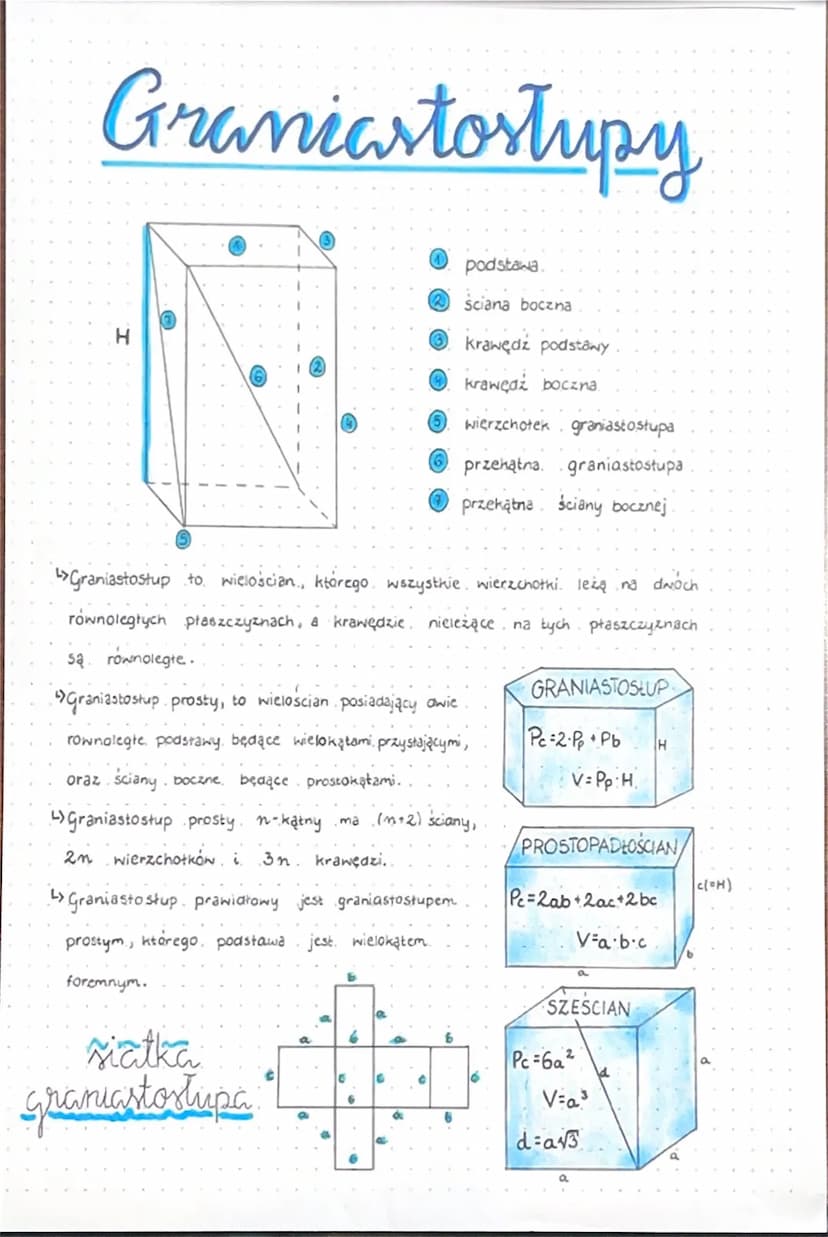 Graniastosłupy
H
1
3
7
6
2
4
5
1 podstawa
2 ściana boczna
3 krawędź podstawy
4 krawędź boczna
5 wierzchołek graniastosłupa
6 przekątna graniastosłupa
7 przekątna ściany bocznej
↳Graniastosłup to wielościan, którego wszystkie wierzchołki leżą na dwóch
równoległych płaszczyznach, a krawędzie nieleżące na tych płaszczyznach
są równoległe.
↳Graniastosłup prosty, to wielościan posiadający dwie
równoległe podstawy będące wielokątami przystającymi,
oraz ściany boczne będące prostokątami.
↳Graniastosłup prosty n-kątny ma (n+2) ściany,
2n wierzchołków i 3n krawędzi.
↳Graniastosłup prawidłowy jest graniastosłupem
prostym, którego podstawa jest wielokątem
foremnym.
GRANIASTOSŁUP
Pc=2·Pp+Pb
H
V=Pp·H
PROSTOPADŁOŚCIAN
c(=H)
Pc=2ab+2ac+2bc
V=a·b·c
b
a
SZEŚCIAN
Pc=6a²
d
a
V=a³
d=a√3
a
a
siatka
graniastosłupa
b
a a
a b a b
c c c c b
b
a a b
a a
b